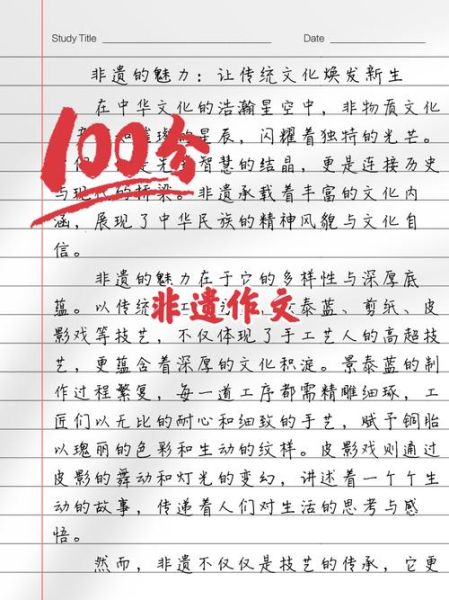 Study Title
Date
非遗的魅力：让传统文化焕发新生
在中华文化的浩瀚星空中，非物质文化
的星辰，闪耀着独特的光芒。
智慧的结晶，更是连接历史
与现代的桥梁。非遗承载着丰富的文化内
涵，展现了中华民族的精神风貌与文化自
信。
100分
非遗的魅力在于它的多样性与深厚底
蕴。以传统
泰蓝、剪纸、皮
非遗作文
影戏等技艺，不仅体现了手工艺人的高超技
艺，更蕴含着深厚的文化积淀。景泰蓝的制
作过程繁复，每一道工序都需精雕细琢，工
匠们以无比的耐心和细致的手艺，赋予铜胎
以瑰丽的色彩和生动的纹样。皮影戏则通过
皮影的舞动和灯光的变幻，讲述着一个个生
动的故事，传递着人们对生活的思考与感
悟。
然而，非遗不仅仅是技艺的传承，它更